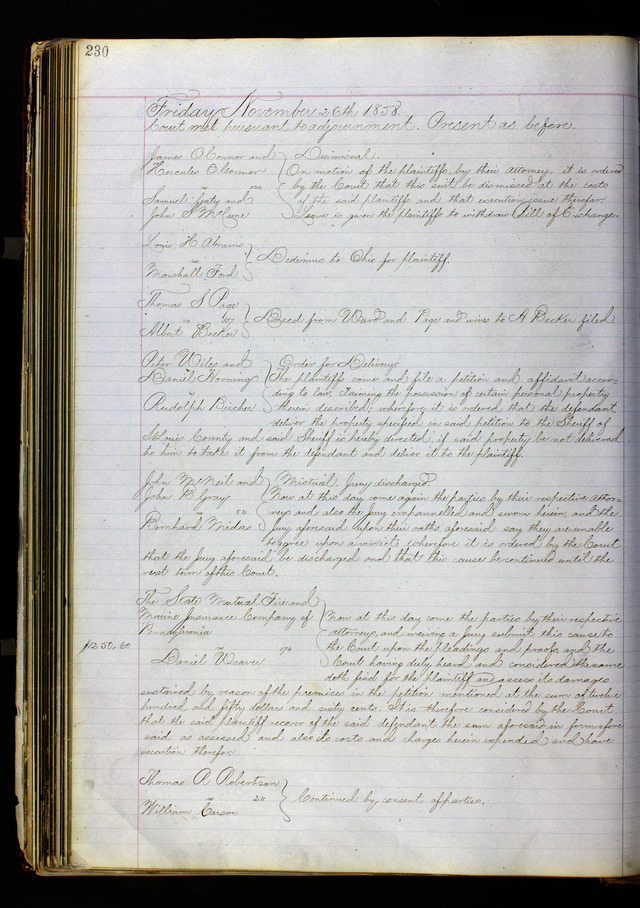 230
Friday November 26th 1858.
Court met pursuant to adjournment. Present as before.
James O'Connor and
Hercules O'Connor
vs
Samuel Gaty and
John S McCune
Dismissal.
On motion of the plaintiffs, by their attorney, it is ordered
by the Court that this suit be dismissed at the costs
of the said plaintiffs and that execution issue therefor.
Leave is given the plaintiffs to withdraw Bill of Exchange.
Louis H Abrams
vs
Marshall Ford
Dedimus to Ohio for plaintiff.
Thomas S Page
vs 187
Albert Becker
Deed from Ward and Page and wives to A Becker filed.
Peter Wiles and
Daniel Horning
vs
Rudolph Bircher
Order for Delivery
The plaintiffs come and file a petition and affidavit accor-
ding to law, claiming the possession of certain personal property
therein described; wherefore it is ordered that the defendant
deliver the property specified in said petition to the Sheriff of
St Louis County and said Sheriff is hereby directed, if said property be not delivered
to him to take it from the defendant and deliver it to the plaintiff.
John McNeil and
John B Gray
vs 50
Bernhard Midas
Mistrial. Jury discharged.
Now at this day come again the parties by their respective attor-
neys and also the jury empannelled and sworn herein, and the
jury aforesaid upon their oaths aforesaid say they are unable
to agree upon a verdict, wherefore it is ordered by the Court
that the jury aforesaid be discharged and that this cause be continued until the
next term of this Court.
The State Mutual Fire and
Marine Insurance Company of
Pennsylvania
vs 174
Daniel Weaver
$1250,60
Now at this day come the parties by their respective
attorneys, and waiving a jury submit this cause to
the Court upon the pleadings and proofs, and the
Court having duly heard and considered the same
doth find for the plaintiff and assess its damages
sustained by reason of the premises in the petition mentioned at the sum of twelve
hundred and fifty dollars and sixty cents. It is therefore considered by the Court
that the said plaintiff recover of the said defendant the sum aforesaid in form afore
said as assessed and also its costs and charges herein expended and have
execution therefor.
Thomas A Robertson
vs 211
William Carson
Continued by consent of parties.